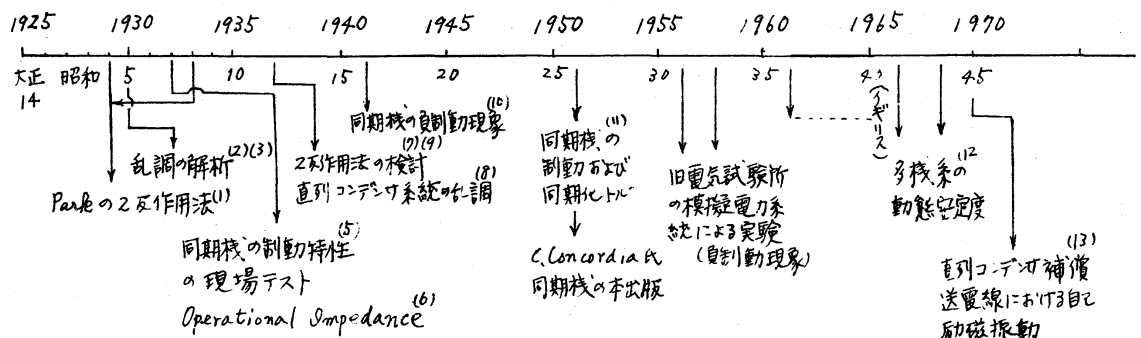 1925 1930 1935 1940 1945 1950 1955 1960 1965 1970
大正 昭和 5 10 15 20 25 30 35 40 45
14
(イギリス)
乱調の解析(2)(3)
Parkの2反作用法(1)
同期機の制動特性(5)
の現場テスト
Operational Impedance(6)
同期機の負制動現象(10)
2反作用法の検討(7)(9)
直列コンデンサ系統の乱調(8)
同期機の(11)
制動および
同期化トルク
C.Concordia氏
同期機の本出版
旧電気試験所
の模擬電力系
統による実験
(負制動現象)
多機系の(12
動態安定度
直列コンデンサ補償(13)
送電線における自己
励磁振動